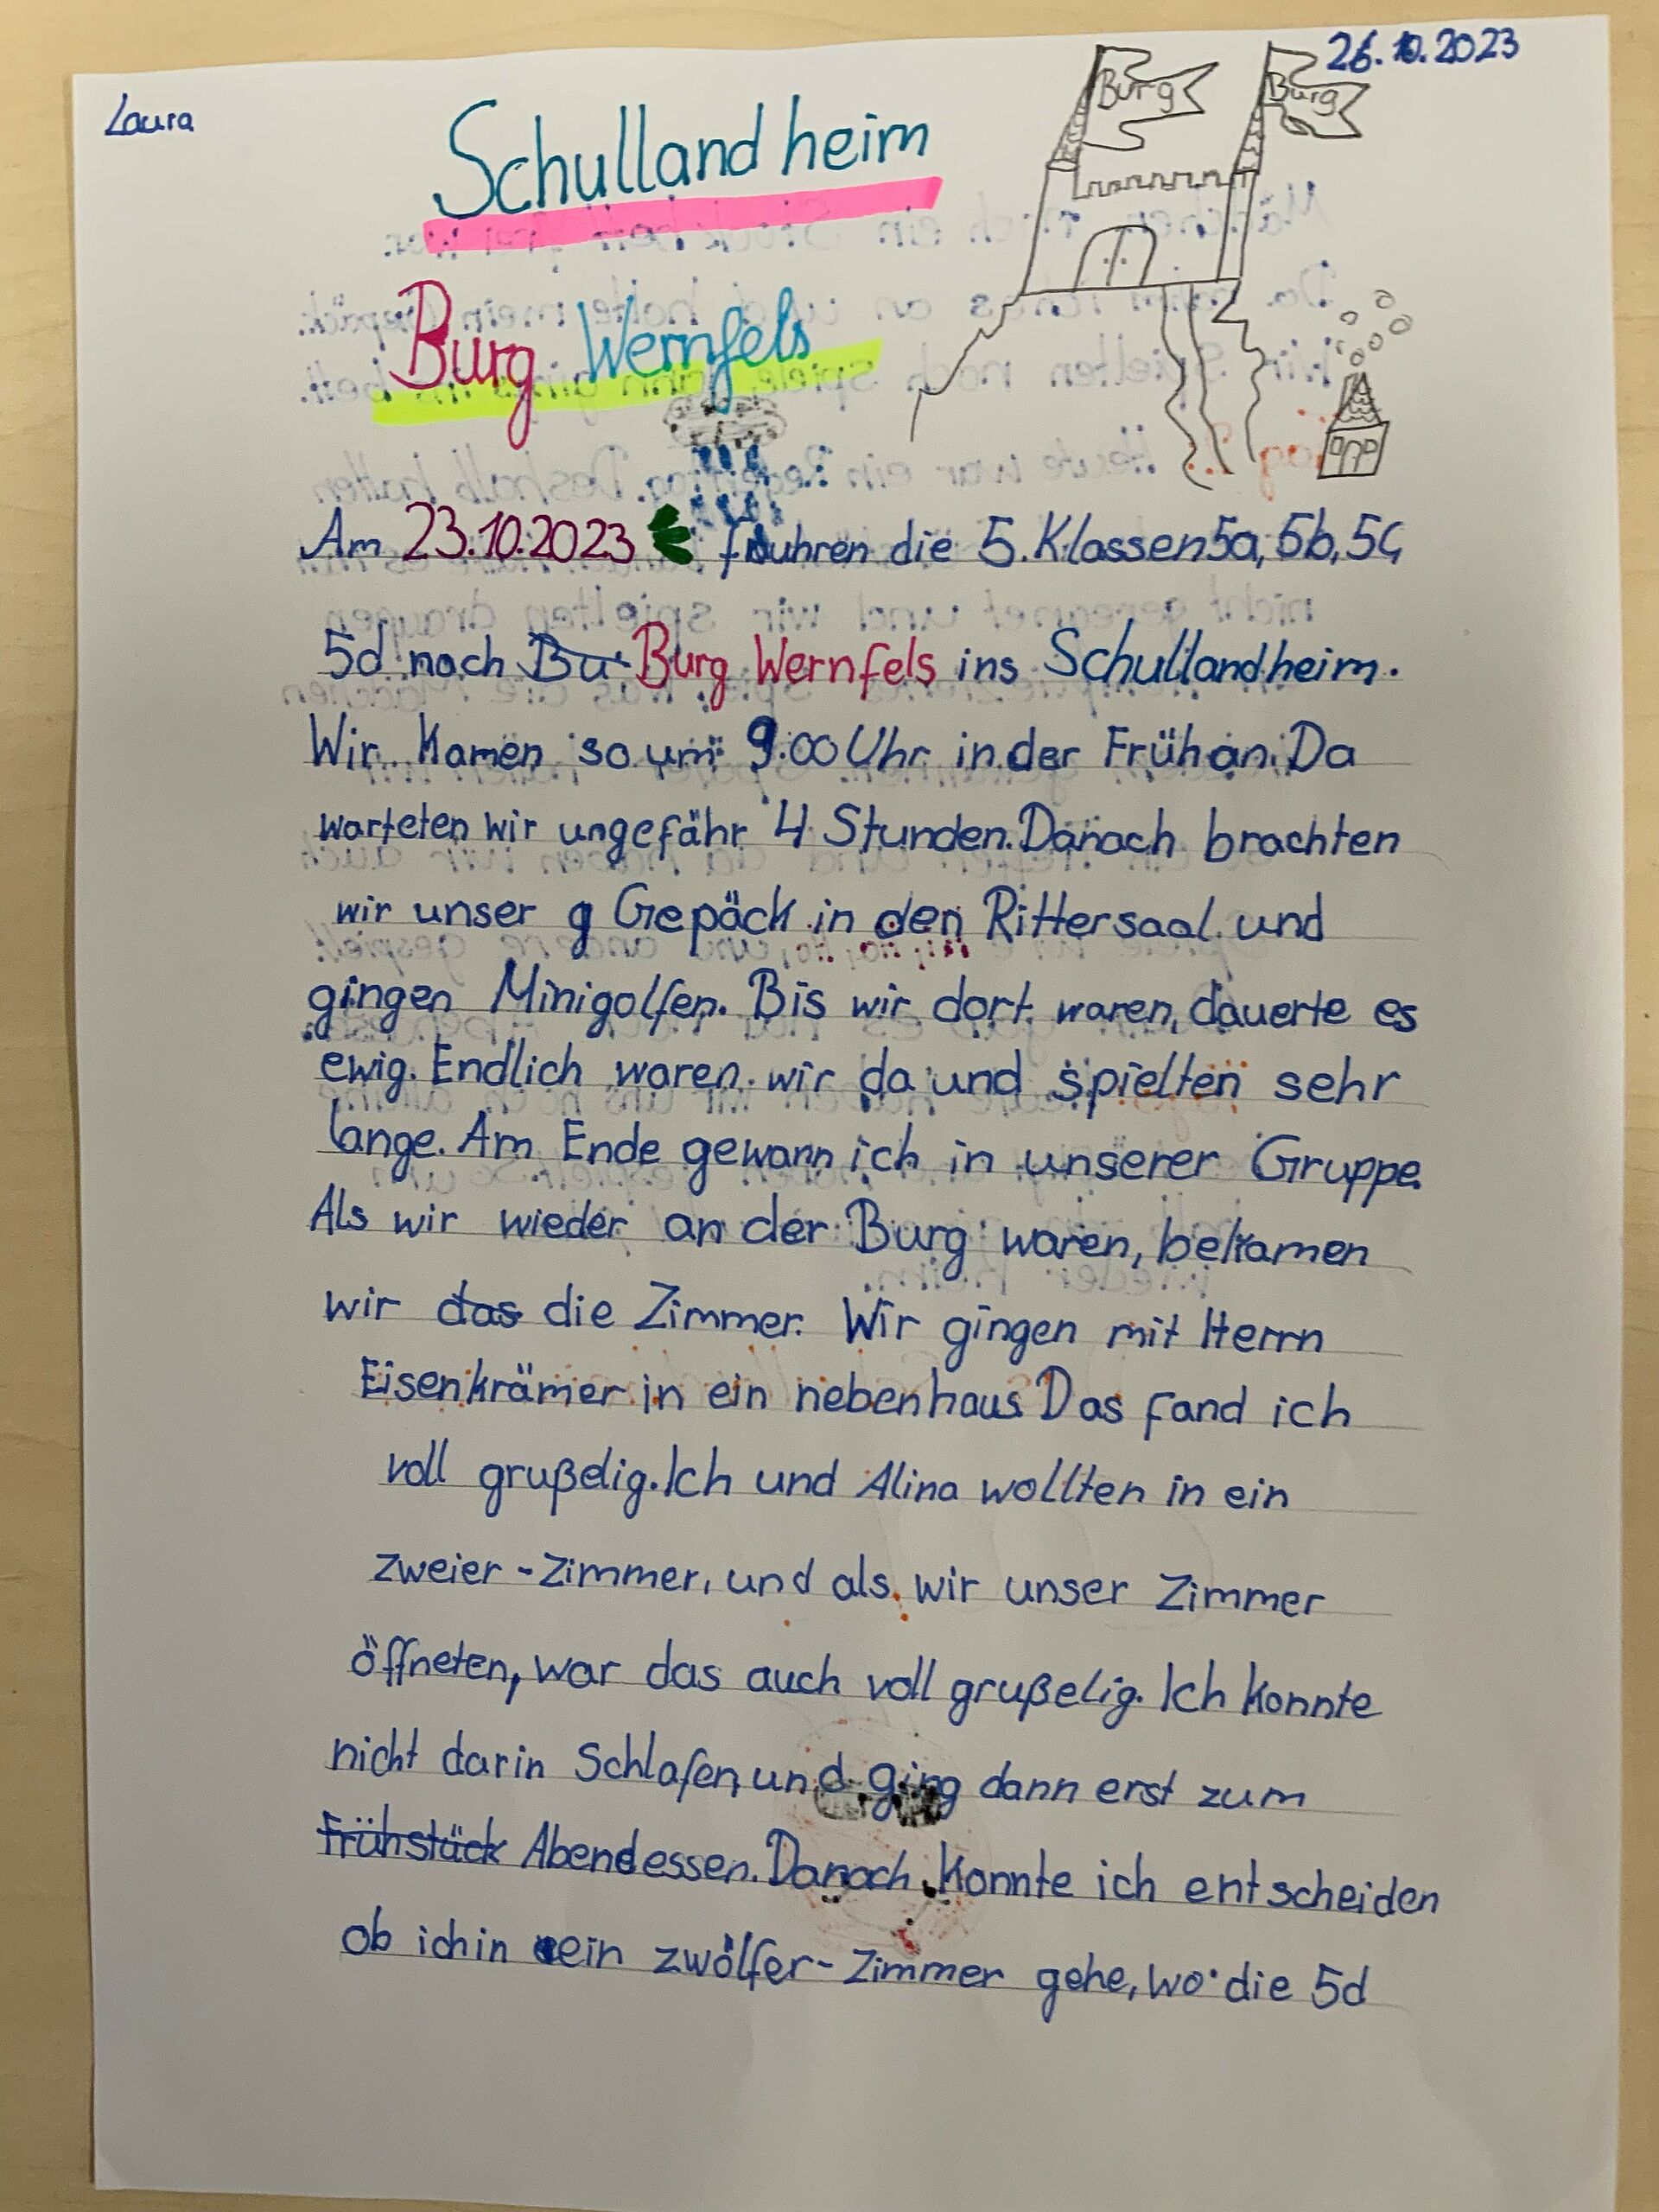 Laura
26.10.2023
Burg
Burg
Schullandheim
Burg Wernfels
Am 23.10.2023 fuhren die 5. Klassen 5a, 5b, 5c,
5d nach Bu Burg Wernfels ins Schullandheim.
Wir kamen so um 9.00 Uhr in der Früh an. Da
warteten wir ungefähr 4 Stunden. Danach brachten
wir unser g Gepäck in den Rittersaal und
gingen Minigolfen. Bis wir dort waren, dauerte es
ewig. Endlich waren wir da und spielten sehr
lange. Am Ende gewann ich in unserer Gruppe.
Als wir wieder an der Burg waren, bekamen
wir das die Zimmer. Wir gingen mit Herrn
Eisenkrämer in ein nebenhaus. Das fand ich
voll grußelig. Ich und Alina wollten in ein
zweier-Zimmer, und als wir unser Zimmer
öffneten, war das auch voll grußelig. Ich konnte
nicht darin Schlafen, und ging dann erst zum
Frühstück Abendessen. Danach konnte ich entscheiden
ob ich in ein zwölfer-Zimmer gehe, wo die 5d